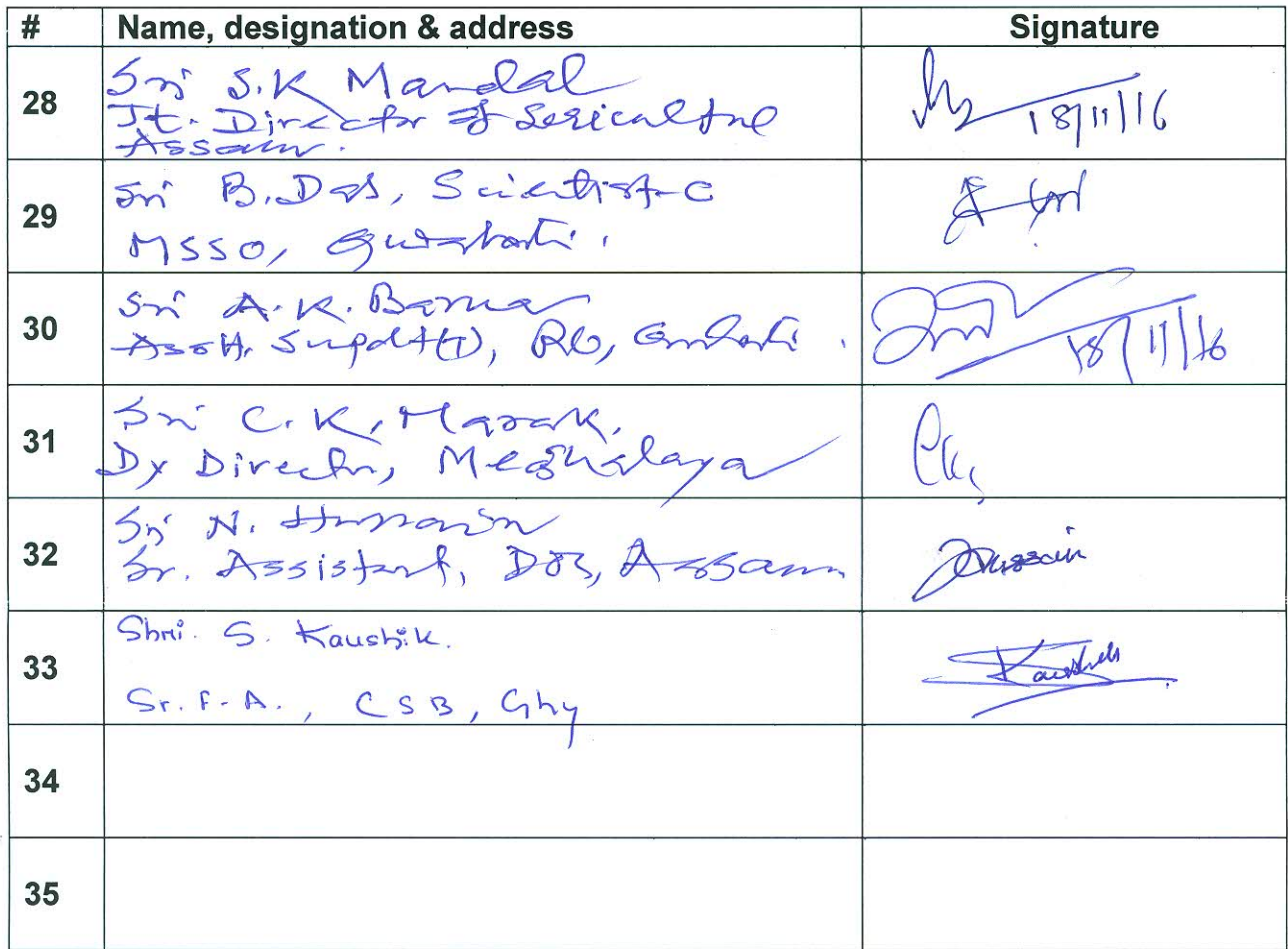 # Name, designation & address Signature
28 Sri S.K Mandal
Jt. Director of Sericulture
Assam.
18/11/16
29 Sri B. Das, Scientist-C
MSSO, Guwahati.
30 Sri A. K. Barua
Asstt. Supdt (T), RO, Guwahati.
18/11/16
31 Sri C. K. Marak,
Dy Director, Meghalaya
32 Sri N. Hussain
Sr. Assistant, DOS, Assam
Hussain
33 Shri. S. Kaushik.
Sr. F.A., CSB, Ghy
Kaushik
34
35